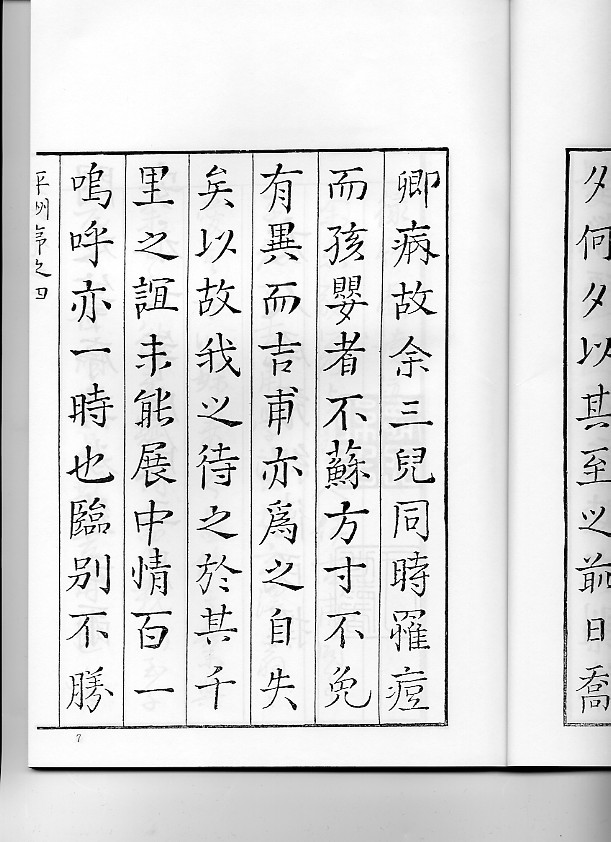 夕何夕以其至之前日喬
卿病故余三兒同時罹痘
而孩嬰者不蘇方寸不免
有異而吉甫亦爲之自失
矣以故我之待之於其千
里之誼未能展中情百一
嗚呼亦一時也臨別不勝
平明第之四
7